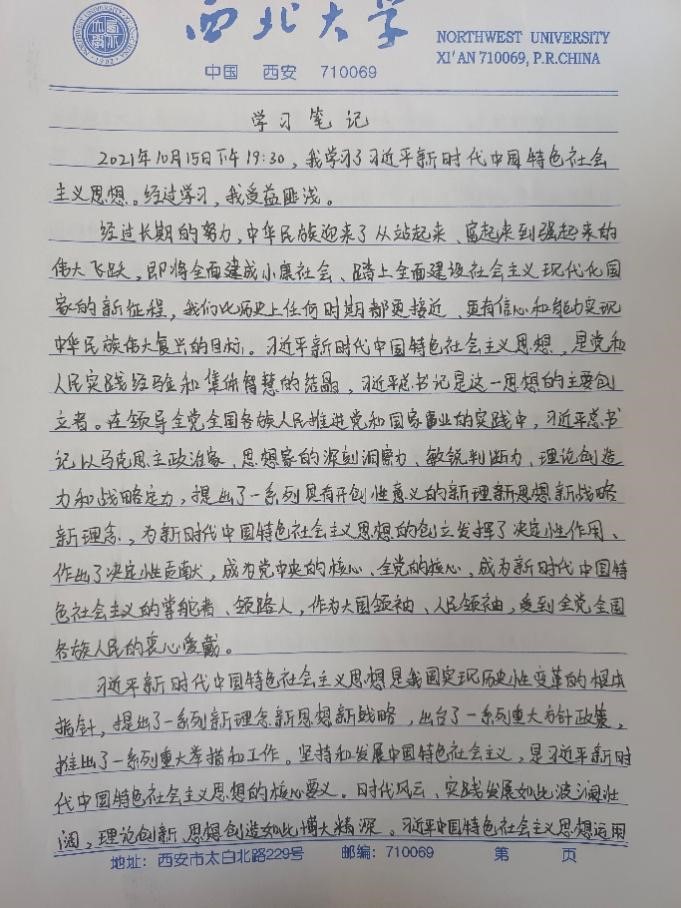 西北大学
NORTHWEST UNIVERSITY
XI'AN 710069, P.R.CHINA
中国 西安 710069
学习笔记
2021年10月15日下午19:30，我学习了习近平新时代中国特色社会
主义思想。经过学习，我受益匪浅。
经过长期的努力，中华民族迎来了从站起来、富起来到强起来的
伟大飞跃，即将全面建成小康社会、踏上全面建设社会主义现代化国
家的新征程，我们比历史上任何时期都更接近、更有信心和能力实现
中华民族伟大复兴的目标。习近平新时代中国特色社会主义思想，是党和
人民实践经验和集体智慧的结晶，习近平总书记是这一思想的主要创
立者。在领导全党全国各族人民推进党和国家事业的实践中，习近平总书
记以马克思主政治家、思想家的深刻洞察力、敏锐判断力、理论创造
力和战略定力，提出了一系列具有开创性意义的新理新思想新战略
新理念，为新时代中国特色社会主义思想的创立发挥了决定性作用、
作出了决定性贡献，成为党中央的核心、全党的核心，成为新时代中国特
色社会主义的掌舵者、领路人，作为大国领袖、人民领袖，受到全党全国
各族人民的衷心爱戴。
习近平新时代中国特色社会主义思想是我国实现历史性变革的根本
指针，提出了一系列新理念新思想新战略，出台了一系列重大方针政策，
推出了一系列重大举措和工作。坚持和发展中国特色社会主义，是习近平新时
代中国特色社会主义思想的核心要义。时代风云、实践发展如此波澜壮
阔，理论创新、思想创造如此博大精深。习近平中国特色社会主义思想运用
地址：西安市太白北路229号 邮编：710069 第 页